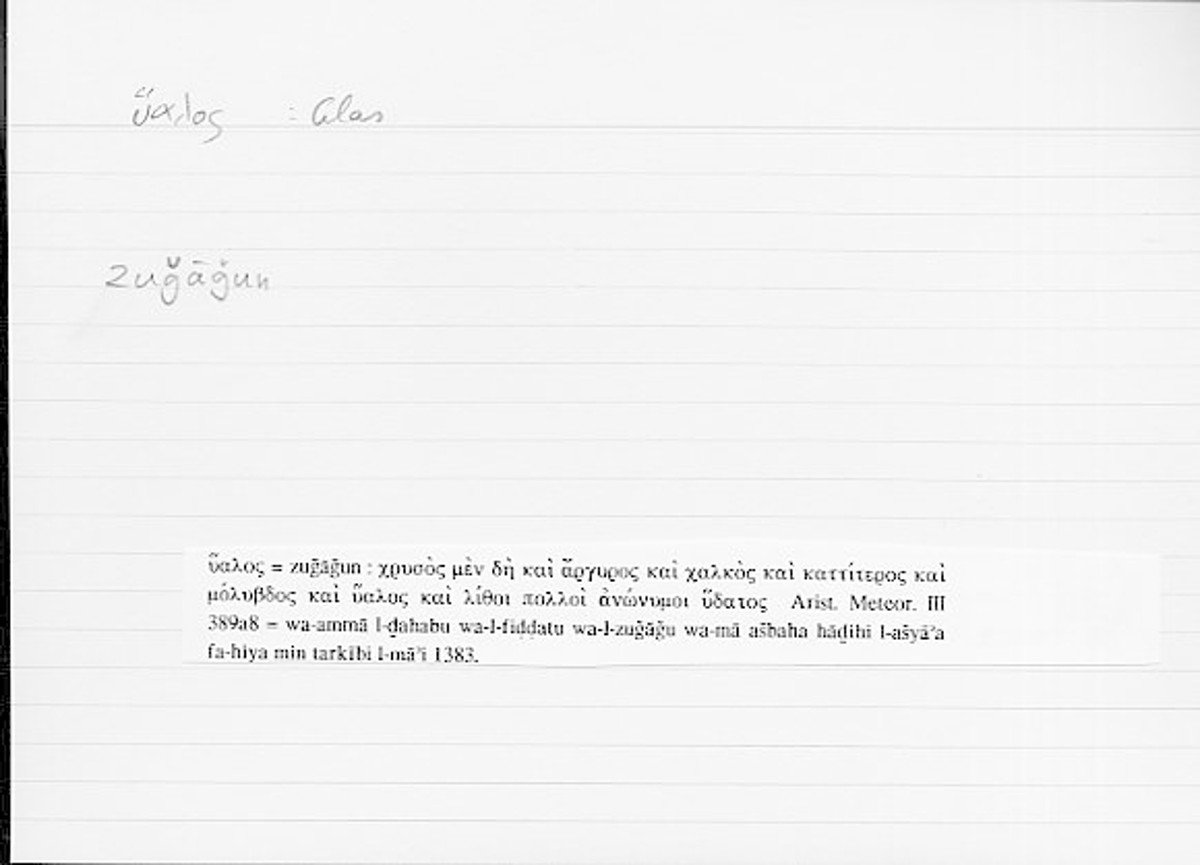 ὕαλος : Glas
zuǧāǧun
ὕαλος = zuǧāǧun : χρυσὸς μὲν δὴ καὶ ἄργυρος καὶ χαλκὸς καὶ καττίτερος καὶ
μόλυβδος καὶ ὕαλος καὶ λίθοι πολλοὶ ἀνώνυμοι ὕδατος Arist. Meteor. III
389a8 = wa-ammā l-ḏahabu wa-l-fiḍḍatu wa-l-zuǧāǧu wa-mā ašbaha hāḏihi l-ašyāʾa
fa-hiya min tarkībi l-māʾi 1383.